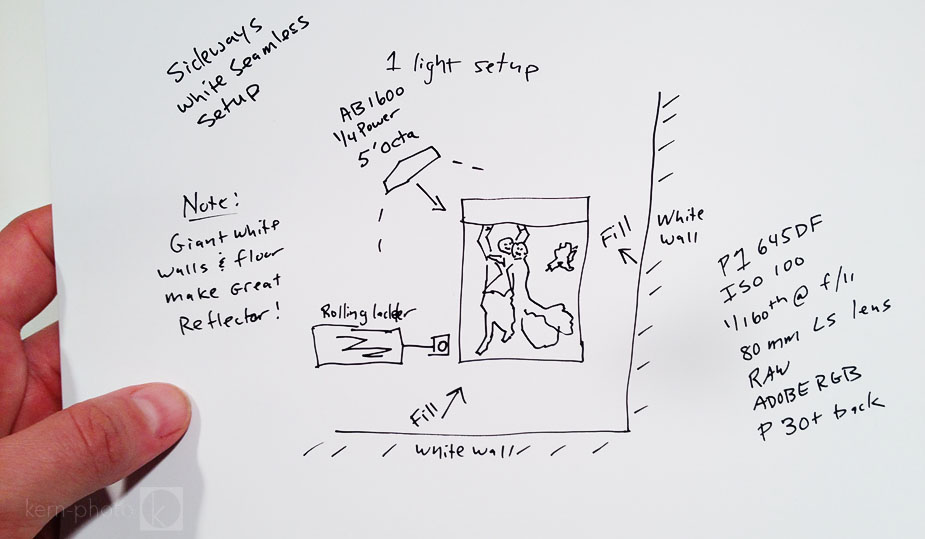 Sideways
White Seamless
Setup
1 light setup
AB1600
1/4 Power
5' Octa
Note:
Giant white
walls & floor
make Great
Reflector!
Rolling ladder
Fill
White
wall
Fill
White wall
P1 645DF
ISO 100
1/160th @ f/11
80 mm LS lens
RAW
ADOBE RGB
P 30+ back
kern-photo k